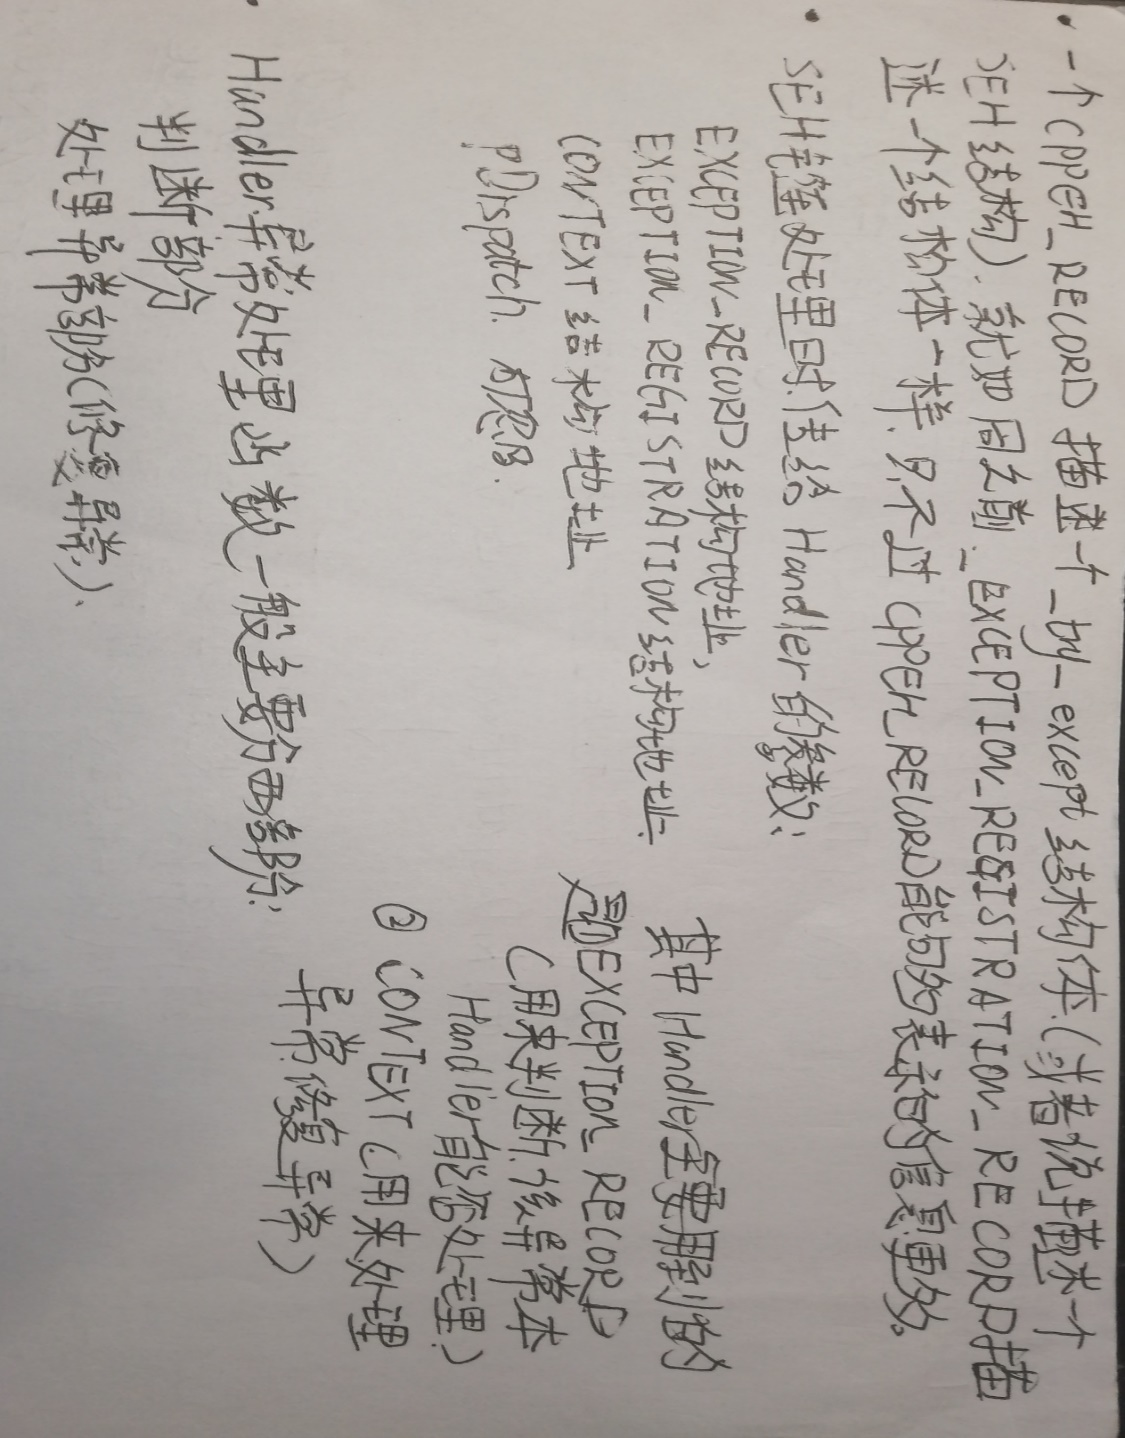 • 一个CPPEH_RECORD 描述一个_try_except 结构体.(或者说描述一个
SEH结构). 就如同之前._EXCEPTION_REGISTRATION_RECORD描
述一个结构体一样. 只不过 CPPEH_RECORD能够表示的信息更多。
• SEH在处理时传给 Handler 的参数:
EXCEPTION_RECORD 结构地址,
EXCEPTION_REGISTRATION 结构地址.
CONTEXT 结构地址
PDispatch. 忽略.
其中 Handler主要用到的
是①EXCEPTION_RECORD
(用来判断.该异常本
Handler能否处理)
② CONTEXT (用来处理
异常.修复异常)
• Handler异常处理函数一般主要分两部分:
判断部分
处理异常部分(修复异常).